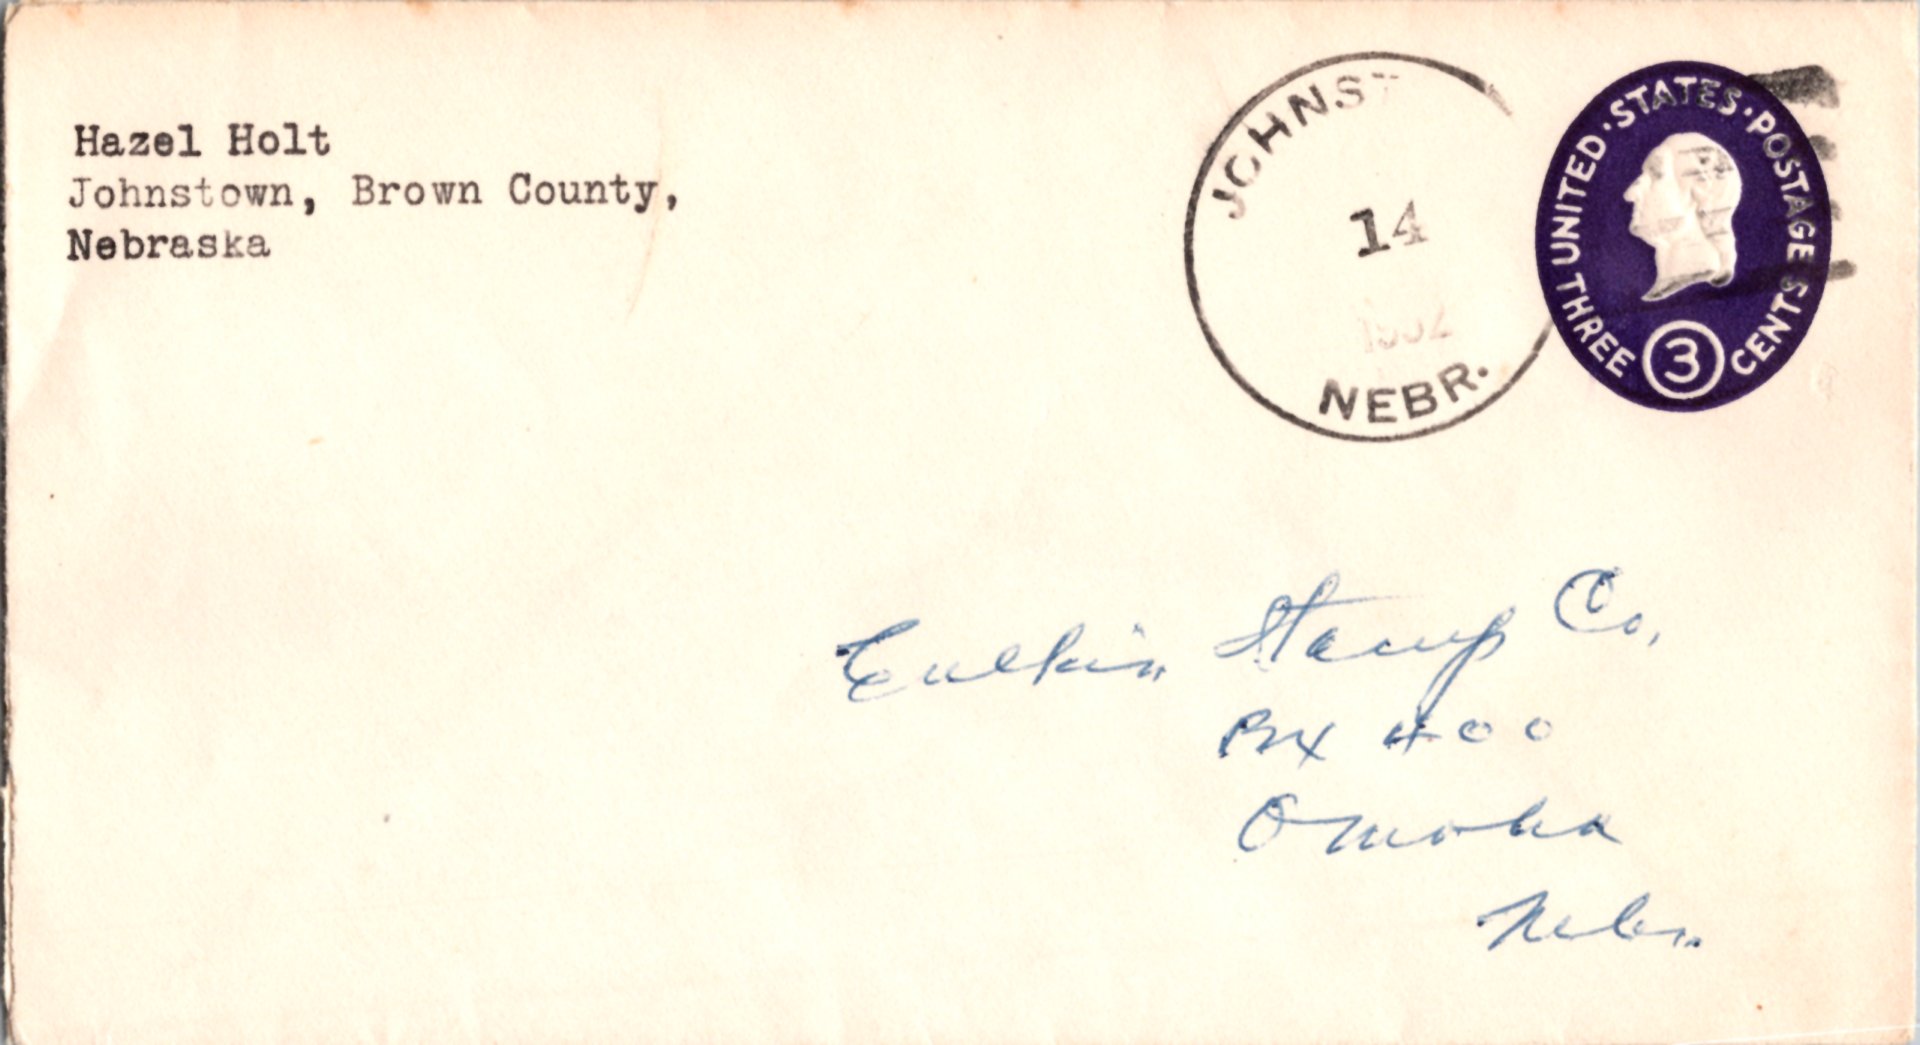 Hazel Holt
Johnstown, Brown County,
Nebraska
JOHNST
14
1952
NEBR.
UNITED·STATES·POSTAGE
THREE 3 CENTS
Stamp Co.
Bx 400
Omaha
Nebr.